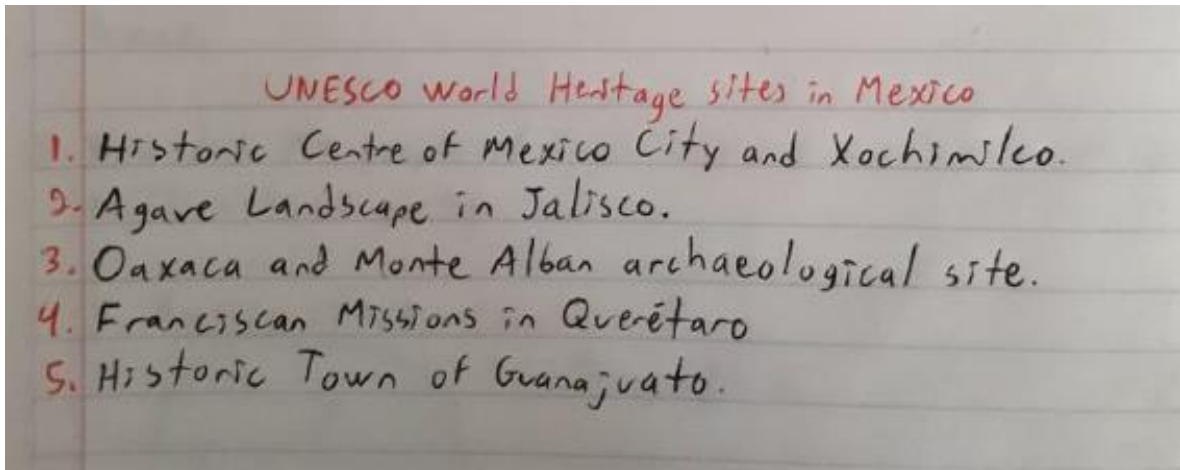 UNESCO World Heritage sites in Mexico
1. Historic Centre of Mexico City and Xochimilco.
2. Agave Landscape in Jalisco.
3. Oaxaca and Monte Alban archaeological site.
4. Franciscan Missions in Querétaro
5. Historic Town of Guanajuato.